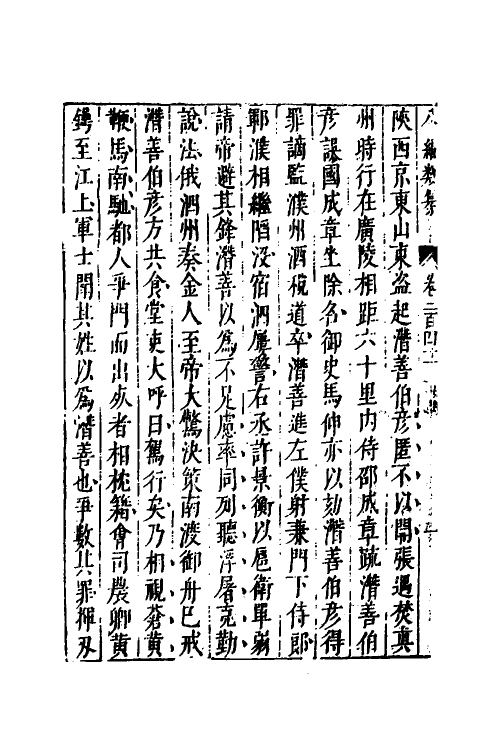 八編類纂 卷二百四十
陝西京東山東盜起潛善伯彥匿不以聞張遇焚真
州時行在廣陵相距六十里内侍邵成章疏潛善伯
彥誤國成章坐除名御史馬伸亦以劾潛善伯彥得
罪謫監濮州酒稅道卒潛善進左僕射兼門下侍郎
鄆濮相繼陷没宿泗屢警右丞許景衡以扈衛單弱
請帝避其鋒潛善以爲不足慮率同列聽浮屠克勤
說法俄泗州奏金人至帝大驚決策南渡御舟已戒
潛善伯彥方共食堂吏大呼曰駕行矣乃相視蒼黄
鞭馬南馳都人爭門而出死者相枕籍會司農卿黄
鍔至江上軍士聞其姓以爲潛善也爭數其罪揮刃